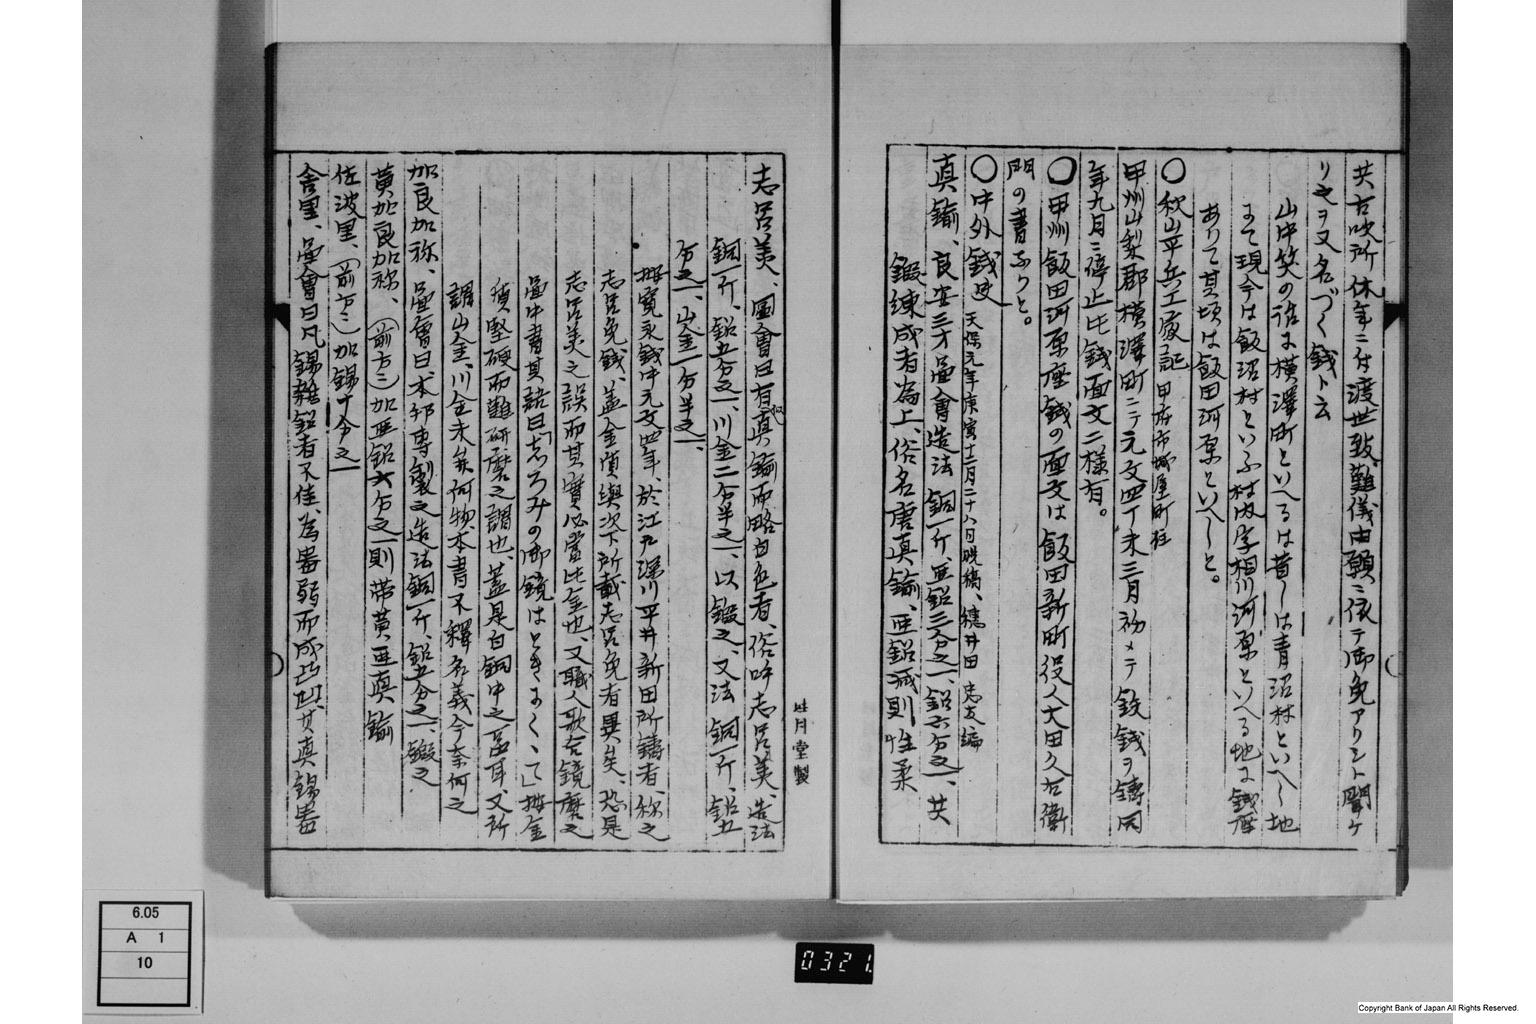 共古吹所休年ニ付渡世致難儀由願ニ依テ御免アリシト聞ケ
リ之ヲ又名づく銭ト云
山中笑の話に横澤町といへるは昔しは青沼村といへし地
にて現今は飯沼村といふ村内字相川河原といへる地に銭座
ありて其頃は飯田河原といへしと。
○秋山平兵工履記 甲府市城屋町住
甲州山梨郡横澤町ニテ元文四丁未三月初メテ鉄銭ヲ鋳同
年九月ニ停止此銭面文二様有。
○甲州飯田河原座銭の面文は飯田新町役人大田久右衛
門の書なりと。
○中外銭史 天保元年庚寅十二月二十八日脱稿、穂井田忠友編
真鍮、良安三才圖會造法銅一斤、亜鉛三分之一、鉛六分之一、共
鍛練成者為上、俗名唐真鍮、亜鉛减則性柔
志呂美、圖會曰有似真鍮而略白色者、俗呼志呂美、造法
銅一斤、鉛五分之一、川金二分半之一、以鍛之、又法銅一斤、鉛五
分之一、山金一分半之一、
按寛永銭中元文四年、於江戸深川平井新田所鑄者、称之
志呂免銭、盖金質與次下所載志呂免者異矣、恐是
志呂美之誤而其實必當此金也、又職人歌合鏡磨之
畫中書其語曰「志ろみの御鏡はときにくゝて」按金
質堅硬而難研磨之謂也、蓋是白銅中之品耳、又所
謂山金、川金未知何物本書不釋名義今奈何之
加良加祢、圖會曰、本邦專製之造法銅一斤、鉛五分之一、鍛之
黄加良加祢、(前方ニ)加亜鉛六分之一則帯黄亜真鍮
佐波里、(前方ニ)加錫十分之一
舎里、圖會曰凡錫雑鉛者不佳、為器弱而成凸凹、其真錫器
〓月堂製
6.05
A 1
10
0321.
Copyright Bank of Japan All Rights Reserved.